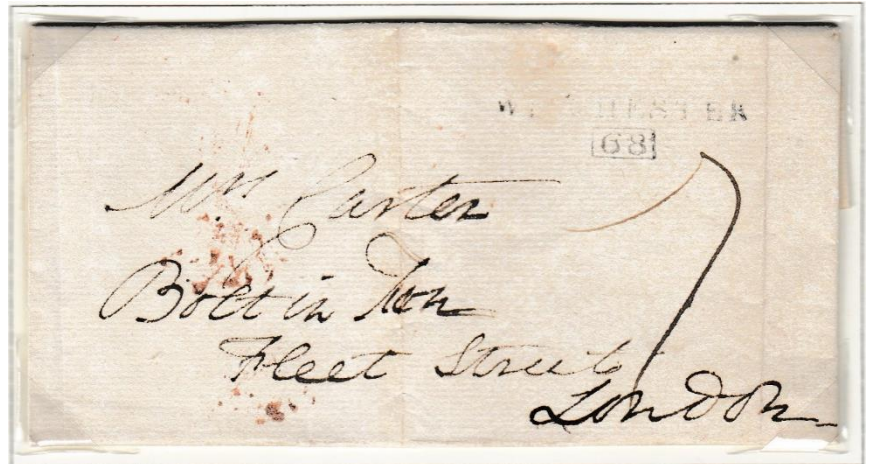 WINCHESTER
68
7
Mrs Carter
Bolt in Tun
Fleet Street
London